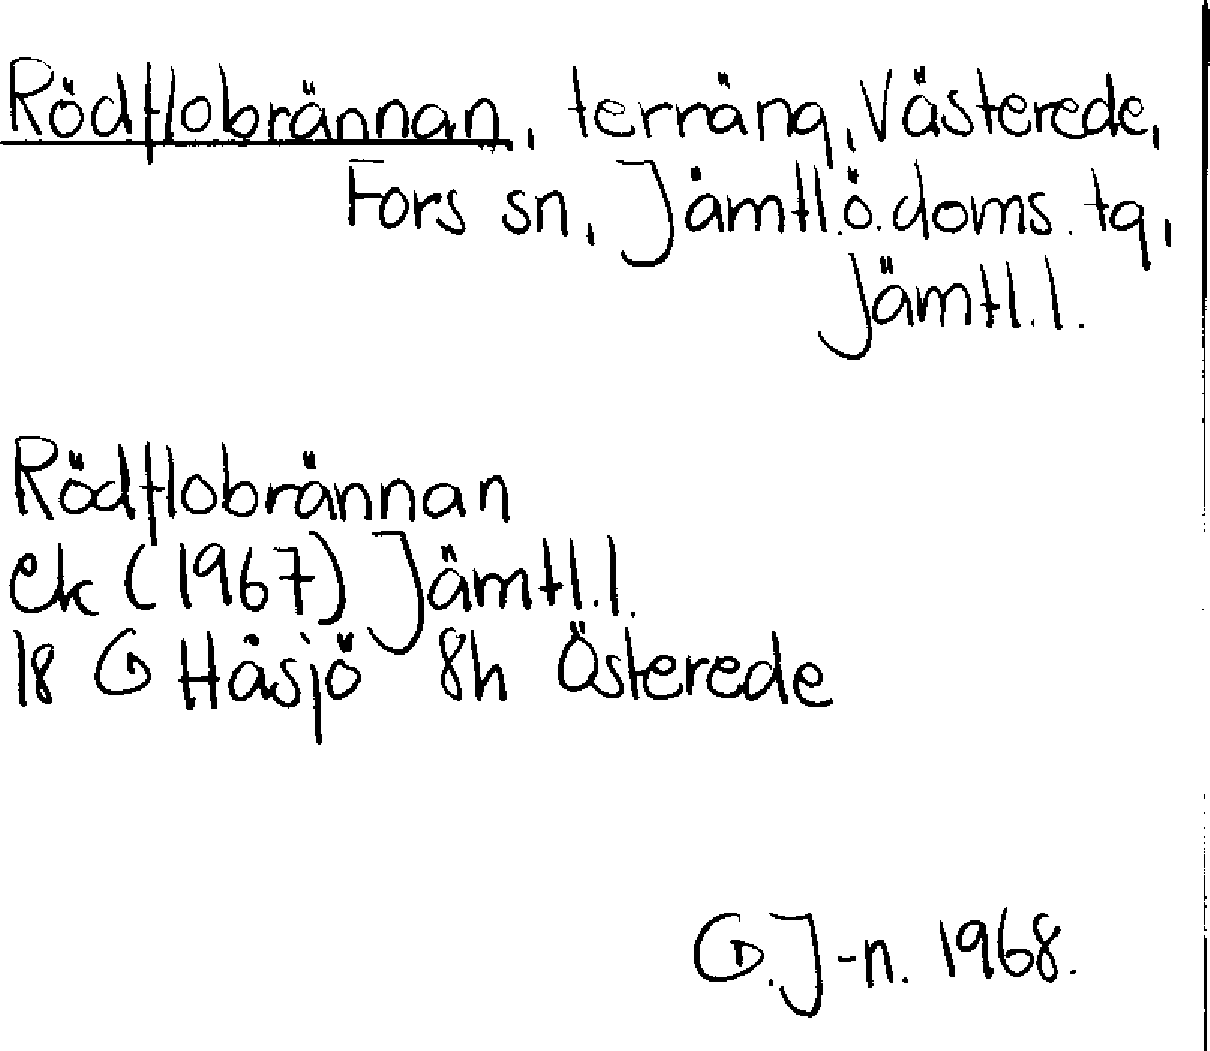 Rödflobrännan, terräng, Västerede,
Fors sn, Jämtl.ö.doms.tg,
Jämtl.l.
Rödflobrännan
ek (1967) Jämtl.l.
18 G Håsjö 8h Österede
G.J-n. 1968.